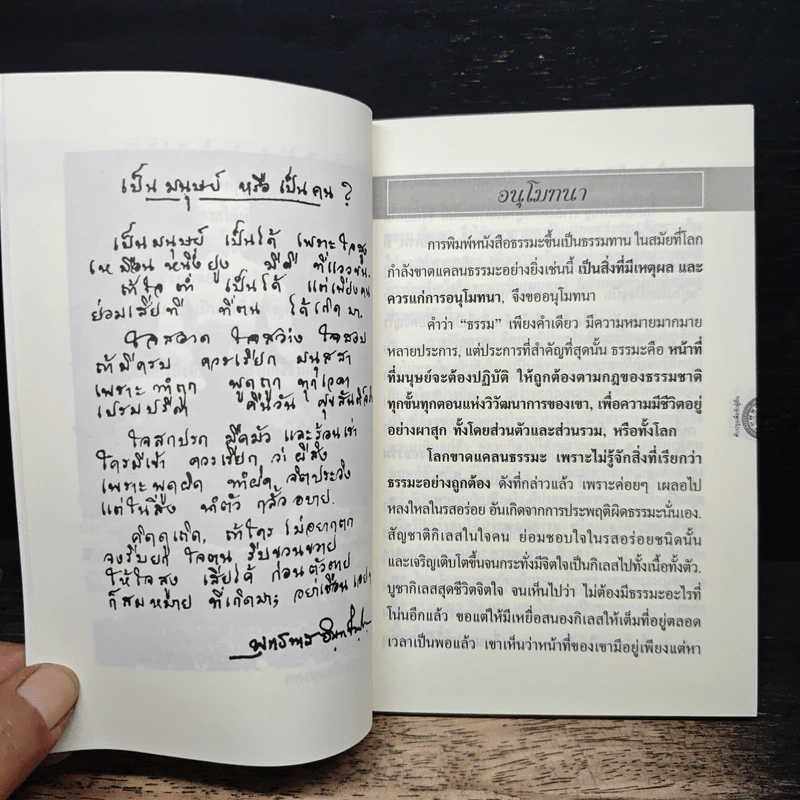 เป็นมนุษย์ หรือ เป็นคน ?
เป็นมนุษย์ เป็นได้ เพราะใจสูง
เหมือนหนึ่งยูง มีดี ที่แววขน.
ถ้าใจต่ำ เป็นได้ แต่เพียงคน
ย่อมเสียที ที่ตน ได้เกิดมา.
ใจสอาด ใจสว่าง ใจสงบ
ถ้ามีครบ ควรเรียก มนุสสา
เพราะทำถูก พูดถูก ทุกเวลา
เปรมปรีดา คืนวัน ศุขสันติ์
ใจสกปรก มืดมัว และร้อนเร่า
ใครมีเข้า ควรเรียก ว่า ผีสิง
เพราะพูดผิด ทำผิด จิตประวิง
แต่ในสิ่ง ทำตัว กลั้วอบาย.
คิดดูเถิด, ถ้าใคร ไม่อยากตก
จงรีบยก ใจตน รีบขวนขวาย
ให้ใจสูง เสียได้ ก่อนตัวตาย
ก็สมหมาย ที่เกิดมา; อย่าเชือน
พุทธทาส อินฺทปญฺโญ
อนุโมทนา
การพิมพ์หนังสือธรรมะขึ้นเป็นธรรมทาน ในสมัยที่โลก
กำลังขาดแคลนธรรมะอย่างยิ่งเช่นนี้ เป็นสิ่งที่มีเหตุผล และ
ควรแก่การอนุโมทนา, จึงขออนุโมทนา
คำว่า “ธรรม” เพียงคำเดียว มีความหมายมากมาย
หลายประการ, แต่ประการที่สำคัญที่สุดนั้น ธรรมะคือ หน้าที่
ที่มนุษย์จะต้องปฏิบัติ ให้ถูกต้องตามกฎของธรรมชาติ
ทุกขั้นทุกตอนแห่งวิวัฒนาการของเขา, เพื่อความมีชีวิตอยู่
อย่างผาสุก ทั้งโดยส่วนตัวและส่วนรวม, หรือทั้งโลก
โลกขาดแคลนธรรมะ เพราะไม่รู้จักสิ่งที่เรียกว่า
ธรรมะอย่างถูกต้อง ดังที่กล่าวแล้ว เพราะค่อยๆ เผลอไป
หลงใหลในรสอร่อย อันเกิดจากการประพฤติผิดธรรมะนั่นเอง.
สัญชาติกิเลสในใจคน ย่อมชอบใจในรสอร่อยชนิดนั้น
และเจริญเติบโตขึ้นจนกระทั่งมีจิตใจเป็นกิเลสไปทั้งเนื้อทั้งตัว.
บูชากิเลสสุดชีวิตจิตใจ จนเห็นไปว่า ไม่ต้องมีธรรมะอะไรที่
โน่นอีกแล้ว ขอแต่ให้มีเหยื่อสนองกิเลสให้เต็มที่อยู่ตลอด
เวลาเป็นพอแล้ว เขาเห็นว่าหน้าที่ของเขามีอยู่เพียงแต่หา